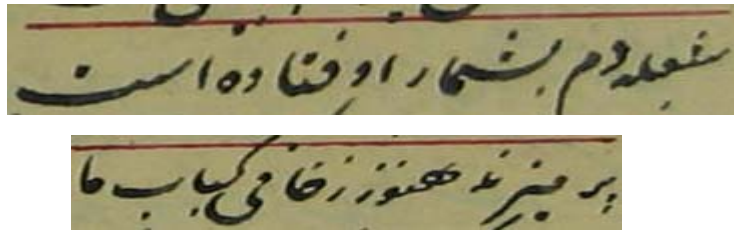 شعله دم بشمار اوفتاده است
پر میزند هنوز ز خامی کباب ما